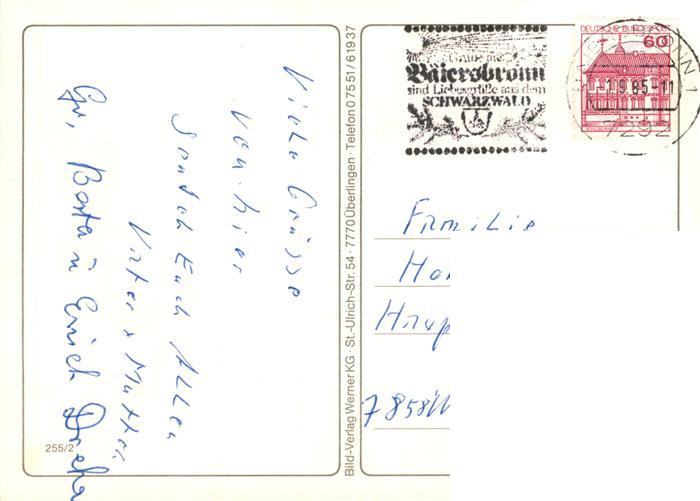 Viele Grüsse
von hier
sendet Euch Allen
Vater & Mutter
Gr, Berta u Erich
255/2
Bild-Verlag Werner KG · St.-Ulrich-Str. 54 · 7770 Überlingen · Telefon 0 75 51 / 6 19 37
Grüße aus
Baiersbronn
sind Liebesgrüße aus dem
SCHWARZWALD
DEUTSCHE BUNDESPOST
60
1.9.85-11
7292
Familie
7858 W